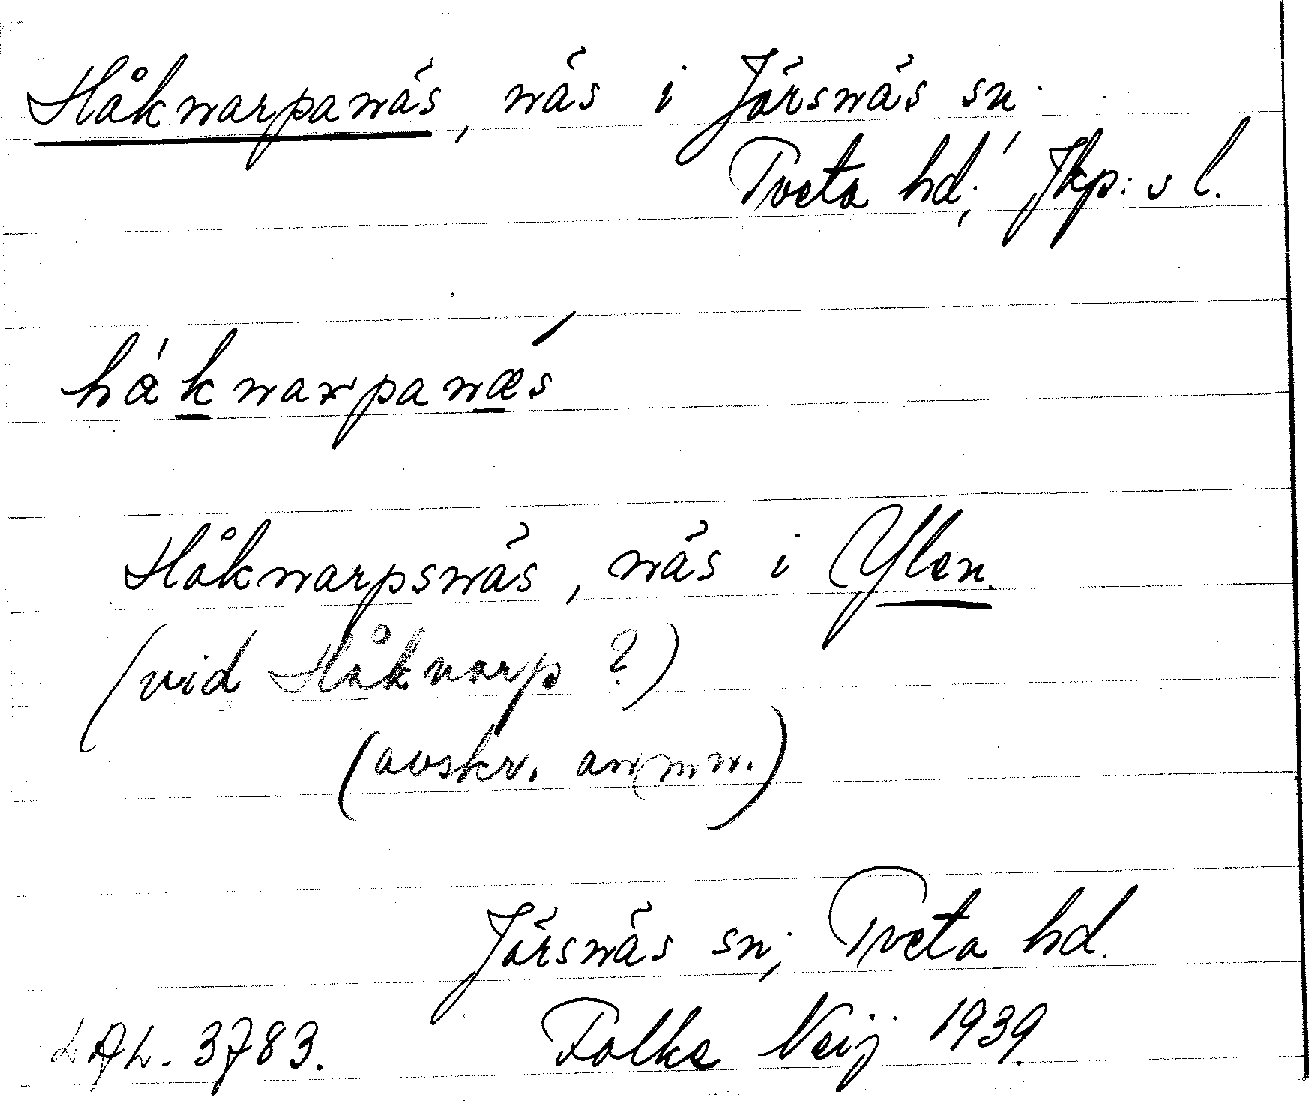 Håknarpanäs, näs i Järsnäs sn.
Tveta hd; Jkp:s l.
håknarpanæs
Håknarpsnäs, näs i Ylen.
(vid Håknarp?)
(avskr. anmn.)
Järsnäs sn; Tveta hd.
LAL. 3783. Folke Neij 1939.